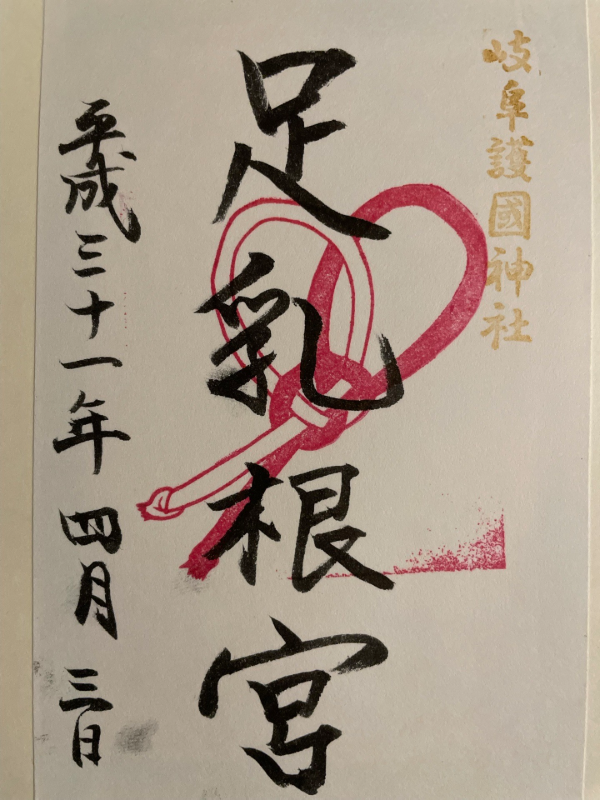 岐阜護國神社
足乳根宮
平成三十一年四月三日